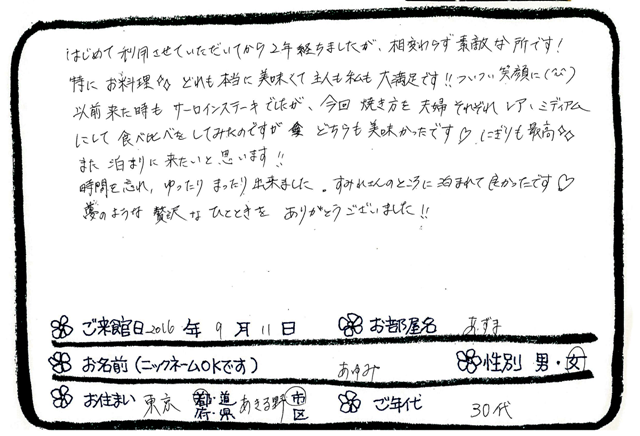 はじめて利用させていただいてから2年経ちましたが、相変わらず素敵な所です!
特にお料理 どれも本当に美味くて主人も私も大満足です!!ついつい笑顔に(^^)
以前来た時もサーロインステーキでしたが、今回焼き方を夫婦それぞれレア、ミディアム
にして食べ比べをしてみたのですが どちらも美味かったです♡ にぎりも最高
また泊まりに来たいと思います!!
時間を忘れ、ゆったりまったり出来ました。すみれさんのところに泊まれて良かったです♡
夢のような贅沢なひとときをありがとうございました!!
ご来館日 2016年 9月 11日 お部屋名 あずま
お名前(ニックネームOKです) あゆみ 性別 男・女
お住まい 東京 都・道・府・県 あきる野 市・区 ご年代 30代